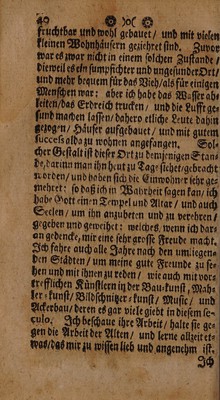 40
fruchtbar und wohl gebauet / und mit vielen
kleinen Wohnhäusern gezieret sind. Zuvor
war es zwar nicht in einem solchen Zustande /
dieweil es ein sumpfichter und ungesunder Ort /
und mehr bequem für das Vieh / als für einigen
Menschen war: aber ich habe das Wasser ab
leiten / das Erdreich trucken / und die Lufft ge
sund machen lassen / dahero etliche Leute dahin
gezogen / Häuser aufgebauet / und mit gutem
success alda zu wohnen angefangen. Solcher
Gestalt ist dieser Ort zu demjenigen Stan-
de, darinn man ihn heut zu Tage siehet / gebracht
worden / und haben sich die Einwohner sehr ge-
mehret: so daß ich in Wahrheit sagen kan / ich
habe Gott einen Tempel und Altar / und auch
Seelen / um ihn anzubeten und zu verehren /
gegeben und geweihet: welches, wenn ich dar-
an gedencke, mir eine sehr grosse Freude macht.
Ich fahre auch alle Jahre nach den umliegen-
den Städten / um meine gute Freunde zu se-
hen und mit ihnen zu reden / wie auch mit vor-
trefflichen Künstlern in der Bau-kunst / Mah-
ler-kunst / Bildschnitzer-kunst / Music / und
Ackerbau / deren es gar viele giebt in diesem se-
culo. Ich beschaue ihre Arbeit / halte sie ge-
gen die Arbeit der Alten / und lerne allzeit et-
was / das mir zu wissen lieb und angenehm ist.
Ich